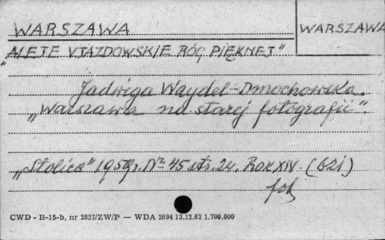 WARSZAWA
WARSZAWA
"ALEJE UJAZDOWSKIE RÓG PIĘKNEJ"
Jadwiga Waydel-Dmochowska.
"Warszawa na starej fotografii".
"Stolica" 1959r. Nr 45 str. 24. Rok XIV. (621)
fot
CWD - B-15-b, nr 2827/ZW/P — WDA 2694 13.12.62 1.799.000